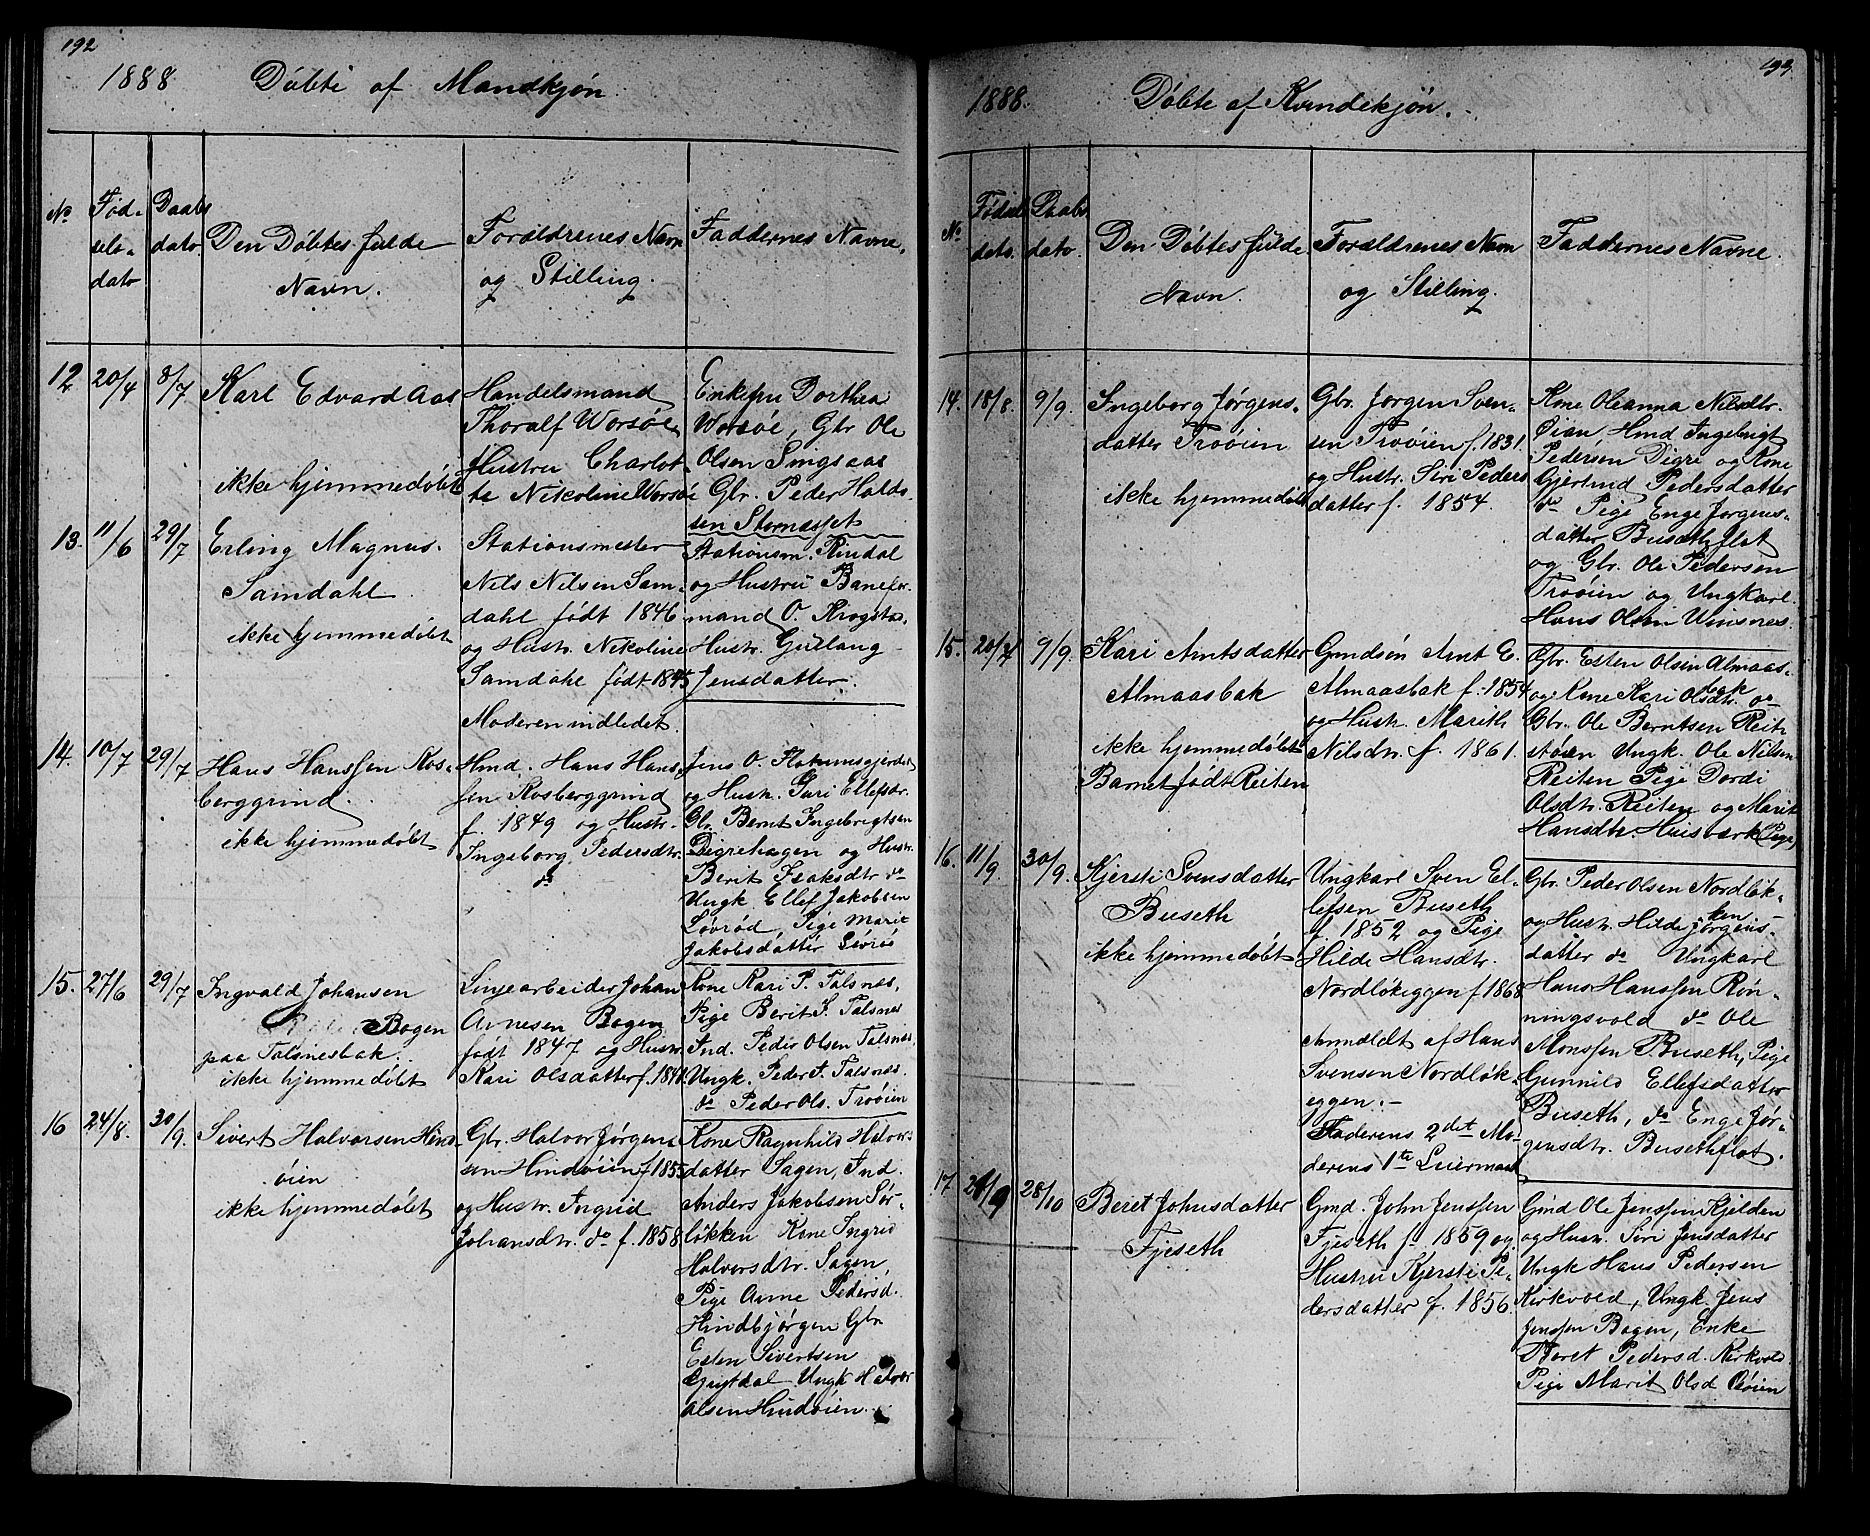 192
1888 Döbte af Mandkjøn.
No
Fød-
sels-
dato
Daabs
dato
Den Döbtes fulde
Navn.
Forældrenes Navn
og Stilling.
Faddernes Navne.
12 20/4 8/7 Karl Edvard Aas
ikke hjemmedøbt
Handelsmand
Thoralf Worsöe
Hustru Charlot
te Nikoline Worsöe
Enkefru Dorthea
Worsöe, Gbr Ole
Olsen Singsaas
Gbr. Peder Haldo
sen Stornæsset
13. 11/6 29/7 Erling Magnus
Samdahl
ikke hjemmedøbt
Stationsmester
Nils Nilsen Sam-
dahl født 1846
og Hustr. Nikoline
Samdahl født 1845
Moderen indledet.
Stationsm. Rindal
og Hustru Banefor
mand O. Krogstad.
Hustr. Gullaug
Jensdatter.
14. 10/7 29/7 Hans Hanssen Ros-
berggrind.
ikke hjemmedøbt
Hmd. Hans Hans
sen Rosberggrind
f. 1849 og Hustr.
Ingeborg Pedersdtr.
do
Jens O. Flotumsgjerdet
og Hustr. Guri Ellefsdr.
Gbr. Bernt Ingebrigtsen
Digrehagen og Hustr.
Berit Isaksdtr do
Ungk Ellef Jakobsen
Lövröd, Pige Marit
Jakobsdatter Lövröd
15. 27/6 29/7 Ingvald Johansen
Bogen
paa Talsnesbak.
ikke hjemmedøbt
Linjearbeider Johan
Arnesen Bogen
født 1847 og Hustr.
Kari Olsdatter f. 1846
Kone Kari P. Talsnes,
Pige Berit J. Talsnes
Ind. Peder Olsen Talsnes,
Ungk. Peder J. Talsnes.
do Peder Ols. Troöien
16 24/8. 30/9. Sivert Halvorsen Hind-
öien
ikke hjemmedøbt
Gbr. Halvor Jörgen
sen Hindöien f. 1855
og Hustr. Ingrid
Johansdtr. do f. 1858
Kone Ragnhild Halvors
datter Sagen, Ind.
Anders Jakobsen Sör-
løkken Kone Ingrid
Halvorsdtr. Sagen,
Pige Anne Pedersd.
Hindbjörgen Gbr.
Esten Sivertsen
Grytdal Ungk Halvor
Olsen Hindöien.
193.
1888. Döbte af Kvindekjön.
No
Fødsel
dato.
Daabs
dato.
Den Döbtes fulde
Navn.
Forældrenes Navn
og Stilling.
Faddernes Navne.
14. 18/8. 9/9. Ingeborg Jørgens-
datter Troöien
ikke hjemmedøbt
Gbr. Jørgen Sven-
sen Troöien f. 1831
og Hustr. Siri Peders
datter f. 1854.
Kone Oleanna Nilsdtr.
Öian Hmd Ingebrigt
Pedersen Digre og Kone
Gjertrud Pedersdatter
do Pige Enge Jørgens-
datter Busethflot
og Gbr. Ole Pedersen
Troöien og Ungkarl
Hans Olsen Winsnes.
15. 20/7 9/9. Kari Arntsdatter
Almaasbak
ikke hjemmedøbt
Barnet født Reiten
Grmdsön Arnt E.
Almaasbak f. 1854
og Hustr. Marith
Nilsdtr f. 1861.
Gbr. Esten Olsen Almaas-
bak
og Kone Kari Olsdtr. do
Gbr. Ole Berntsen Reit
stöen Ungk. Ole Nilsen
Reiten Pige Dordi
Olsdtr. Reiten og Marit
Hansdtr. Husværk (Pige)
16. 11/9 30/9. Kjersti Svensdatter
Buseth
ikke hjemmedøbt
Ungkarl Sven El-
lefsen Buseth
f. 1852 og Pige
Hilde Hansdtr.
Nordlökeggen f 1868
Anmeldt af Hans
Svensen Nordlök-
eggen.-
Faderens 2det Mo-
derens 1te Leiermaal
Gbr. Peder Olsen Nordlök-
ken
og Hustr. Hilde Jörgens-
datter do Ungkarl
Hans Hanssen Rön-
ningsvold do Ole
Monssen Buseth, Pige
Gunnild Ellefsdatter
Buseth, do Enge Jör-
gensdtr. Busethflot.
17 24/9 28/10 Beret Johnsdatter
Fjeseth
Gmd. John Jenssen
Fjeseth f. 1859 og
Hustru Kjersti Pe-
dersdatter f. 1856.
Gmd Ole Jenssen Kjelden
og Hustr. Siri Jensdatter
Ungk Hans Pedersen
Kirkvold, Ungk. Jens
Jenssen Bogen, Enke
Beret Pedersd. Kirkvold
Pige Marit Olsd Röien